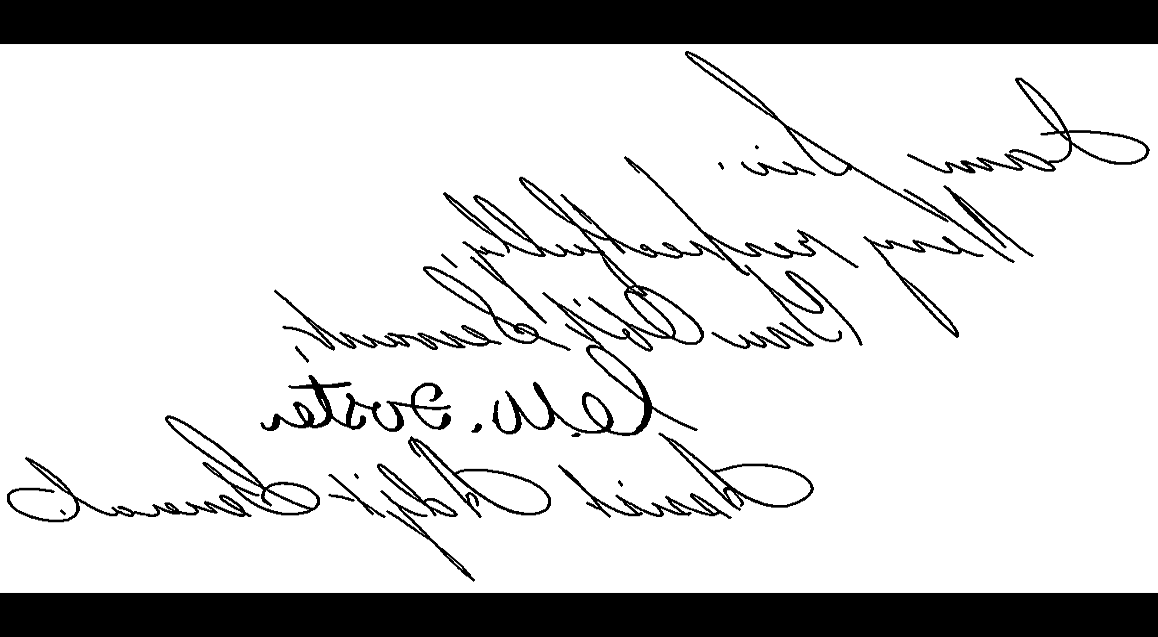 I am Sir.
Very respectfully,
Your Obt. Servant,
C.W. Foster
Assist Adjt General.